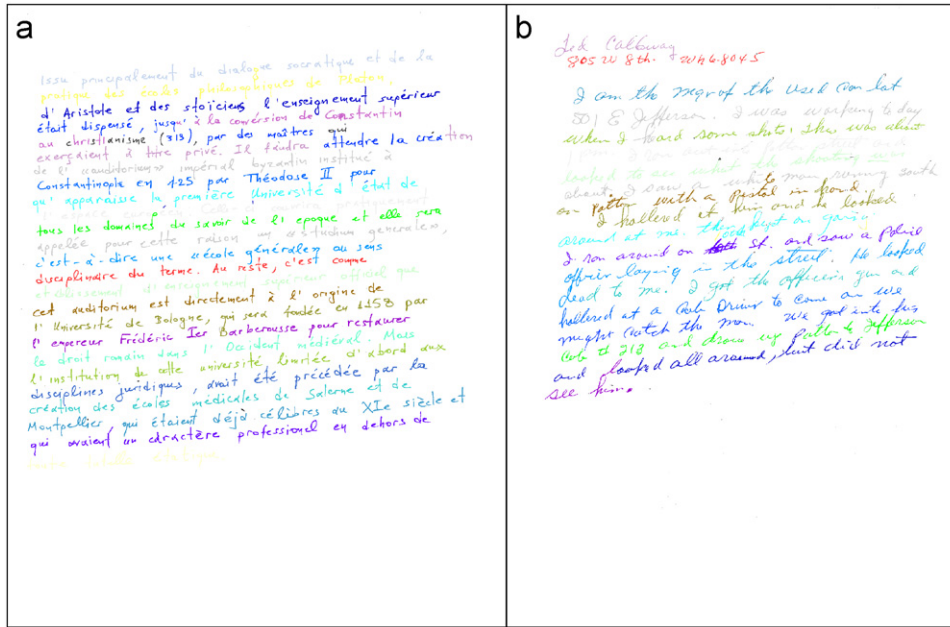 a
Issu principalement du dialogue socratique et de la
pratique des écoles philosophiques de Platon,
d'Aristote et des stoïciens, l'enseignement supérieur
était dispensé, jusqu'à la conversion de Constantin
au christianisme (313), par des maîtres qui
exerçaient à titre privé. Il faudra attendre la création
de l'«auditorium» impérial byzantin institué à
Constantinople en 425 par Théodose II pour
qu'apparaisse la première Université d'état de
tous les domaines du savoir de l'époque et elle sera
appelée pour cette raison un «studium generale»,
c'est-à-dire une «école générale» au sens
disciplinaire du terme. Au reste, c'est comme
établissement d'enseignement supérieur officiel que
cet auditorium est directement à l'origine de
l'Université de Bologne, qui sera fondée en 1158 par
l'empereur Frédéric Ier Barberousse pour restaurer
le droit romain dans l'Occident médiéval. Mais
l'institution de cette université, limitée d'abord aux
disciplines juridiques, avait été précédée par la
création des écoles médicales de Salerne et de
Montpellier, qui étaient déjà célèbres au XIe siècle et
qui avaient un caractère professionel en dehors de
b
Ted Callaway
805 W 8th. WH6.8045
I am the mgr of the Used Car Lot
501 E Jefferson. I was working to day
when I heard some shots, this was about
looked to see what the shooting was
about, I saw a white man running South
on Patton with a pistol in hand.
I hollered at him and he looked
around at me. then kept on going.
I ran around on 10th St. and saw a police
officer laying in the street. He looked
dead to me. I got the officers gun and
hollered at a Cab Driver to come on we
might catch the man. We got into his
Cab # 213 and drove up Patton to Jefferson
and looked all around, but did not
see him.